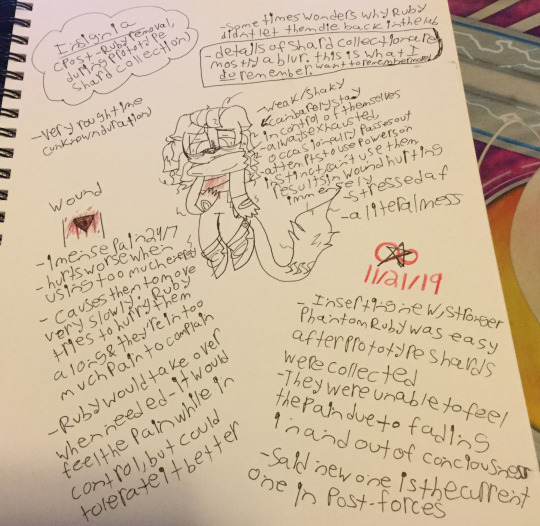 Insignia
(Post-Ruby removal,
during prototype
shard collection)
-Sometimes wonders why Ruby
didn't let them die back in the lab
-details of shard collection are
mostly a blur. this is what I
do remember. want to remember more
-very rough time
(unknown duration)
-weak/shaky
can barely stay
in control of themselves
-always exhausted,
occasionally passes out
-attempts to use powers on
instinct, can't use them
results in wound hurting
immensely
-stressed af
-a literal mess
wound
-imense pain 24/7
-hurts worse when
using too much energy
-Causes them to move
very slowly. Ruby
tries to hurry them
along & they're in too
much pain to complain
-Ruby would take over
when needed - it would
feel the pain while in
control, but could
tolerate it better
11/21/19
-Inserting new, stronger
Phantom Ruby was easy
after prototype shards
were collected
-They were unable to feel
the pain due to fading
in and out of conciousness
-Said new one is the current
one in Post-forces